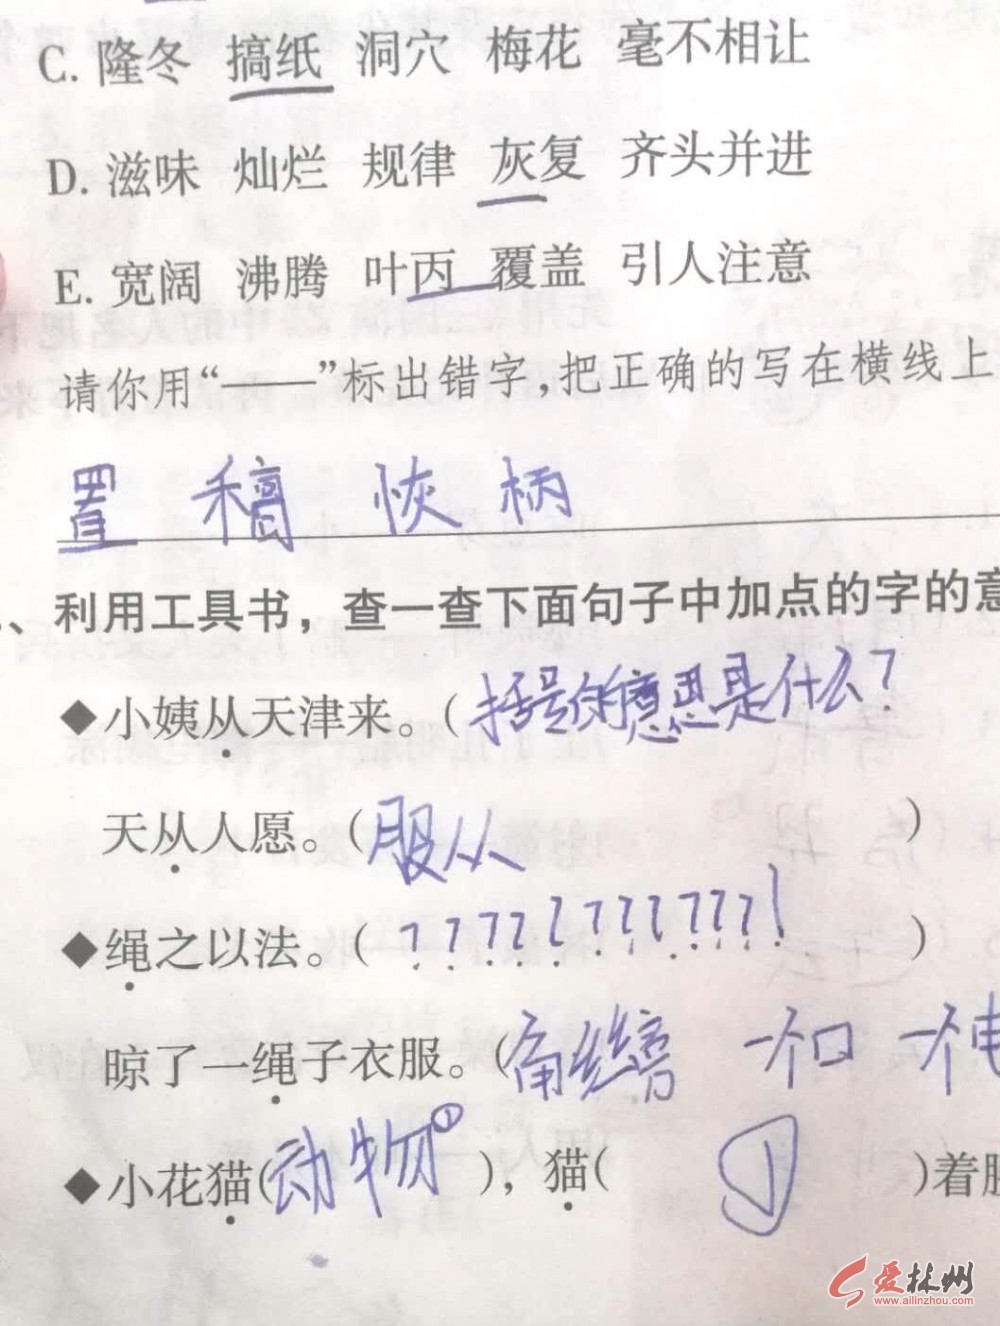 C. 隆冬 搞纸 洞穴 梅花 毫不相让
D. 滋味 灿烂 规律 灰复 齐头并进
E. 宽阔 沸腾 叶丙 覆盖 引人注意
请你用“——”标出错字,把正确的写在横线上
置 稿 恢 柄
、利用工具书，查一查下面句子中加点的字的意
◆小姨从天津来。(括号的意思是什么?
天从人愿。(服从)
◆绳之以法。(???????????!)
晾了一绳子衣服。( 一个口 一个
◆小花猫(动物①)，猫(①)着腰
爱林州
www.ailinzhou.com